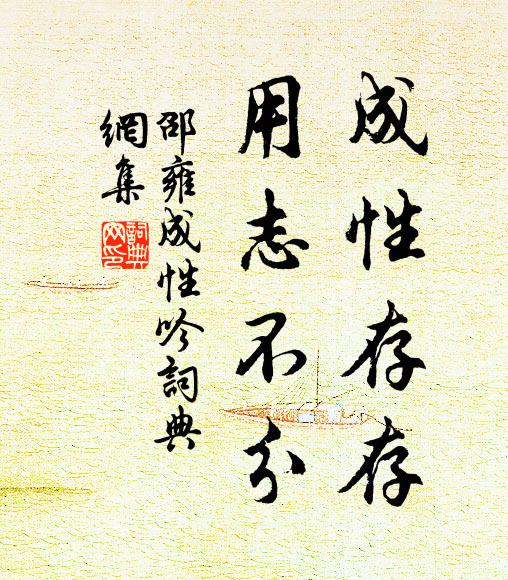 成性存存
用志不分
邵雍成性吟詞典
網集
詞典
网印